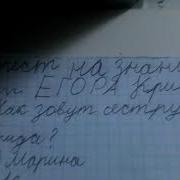 тест на знани
ЕГОРА Кри
Как зовут сестру
ида?
Марина